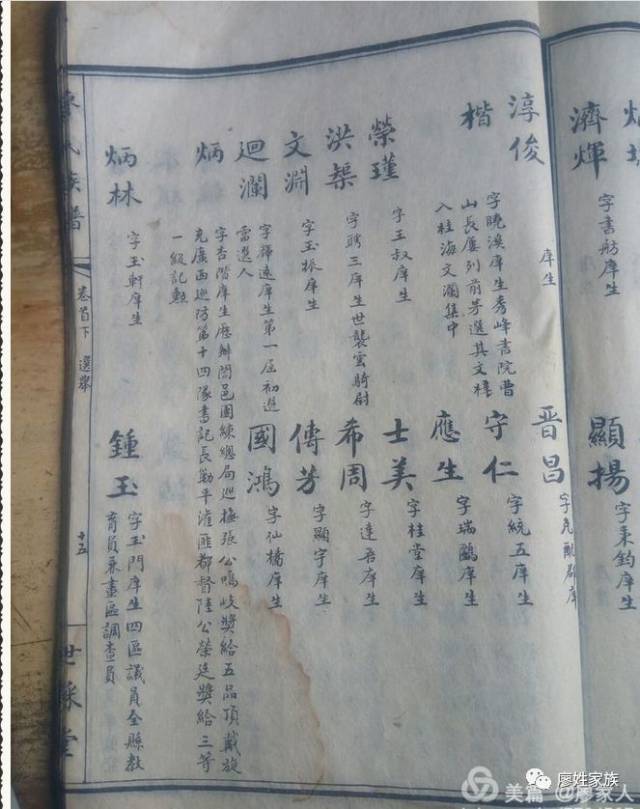 濟煇
字書舫庠生
顯揚
字秉鈞庠生
淳俊
庠生
晋昌
郡庠
楷
字曉溪庠生秀峰書院曹
山長屢列前茅選其文
入桂海文瀾集中
守仁
字統五庠生
應生
字瑞鷗庠生
榮瑾
字玉叔庠生
士美
字桂堂庠生
洪榘
字聘三庠生世襲雲騎尉
希周
字達吾庠生
文淵
字玉振庠生
傳芳
字顯宇庠生
迴瀾
庠生第一屆初選
當選人
國鴻
字仙橋庠生
炳
字杏階庠生歷辦闔邑團練總局巡撫張公鳴岐獎給五品頂戴旋
充廣西巡防第十四隊書記長勦平匪都督陸公榮廷獎給三等
一級記勲
炳林
字玉軒庠生
鍾玉
字玉門庠生四區議員全縣教
育員兼畫區調查員
氏族譜
卷首下
選舉
十五
世綵堂
廖姓家族
美篇 @廖家人